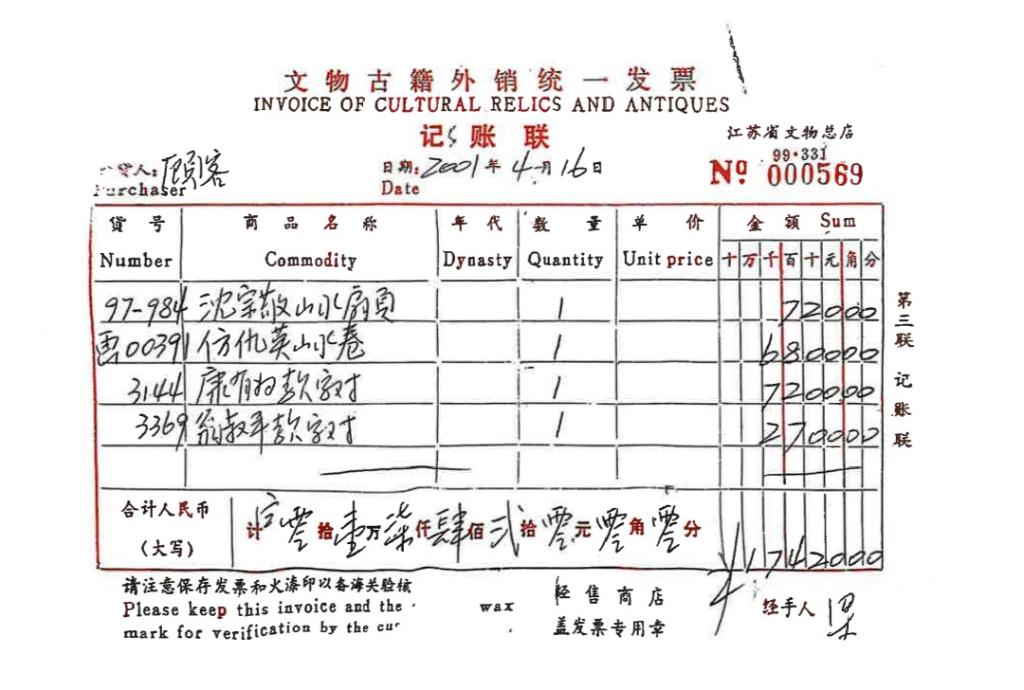 文物古籍外销统一发票
INVOICE OF CULTURAL RELICS AND ANTIQUES
记账联
江苏省文物总店
货人: 顾客
日期: 2001年4月16日
99·331
Purchaser
Date
Nº 000569
货号 商品名称 年代 数量 单价 金额 Sum
Number Commodity Dynasty Quantity Unit price 十万千百十元角分
97-984 沈宗敬山水扇页 1 72000
00391 仿仇英山水卷 1 680000
3144 康有为款字对 1 720000
3369 翁叔平款字对 1 270000
第三联 记账联
合计人民币
(大写)
计 零拾壹万柒仟肆佰贰拾零元零角零分 ¥1742000
请注意保存发票和火漆印以备海关验核
Please keep this invoice and the wax
mark for verification by the
经售商店
盖发票专用章
经手人